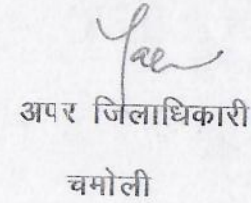 अपर जिलाधिकारी
चमोली